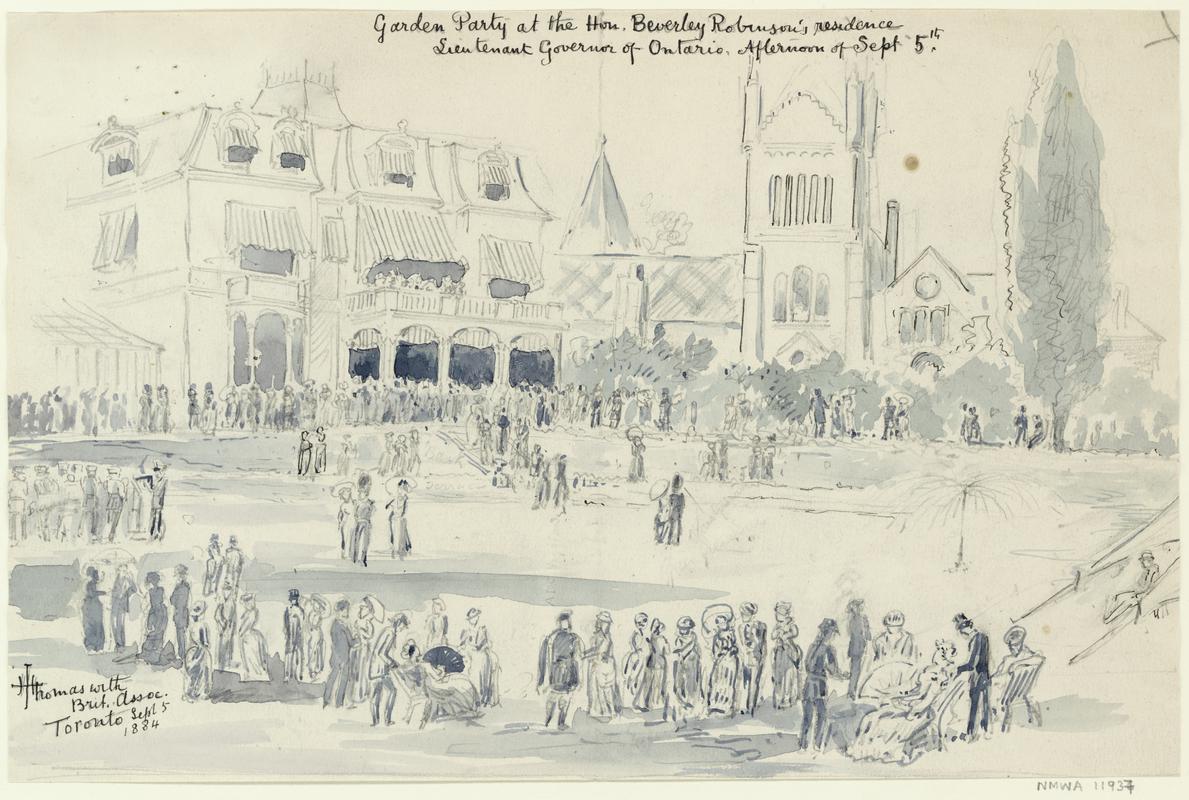 Garden Party at the Hon. Beverley Robinson's residence
Lieutenant Governor of Ontario. Afternoon of Sept 5th.
Thomas with
Brit. Assoc.
Toronto Sept 5
1884
NMWA 11937